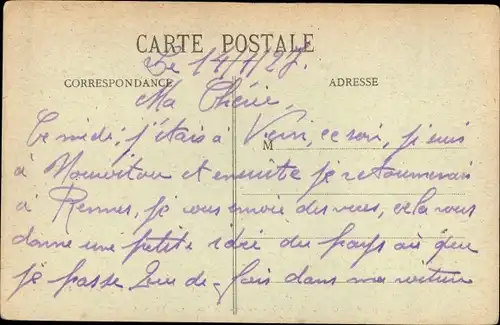 CARTE POSTALE
Le 14/7/27.
CORRESPONDANCE
ADRESSE
Ma Chérie,
Ce midi, j'étais à Vern, ce soir, je suis
M
à Nouvoitou et ensuite je retournerai
à Rennes, je vous envoie des vues, cela vous
donne une petite idée du pays où que
je passe de fois dans ma voiture